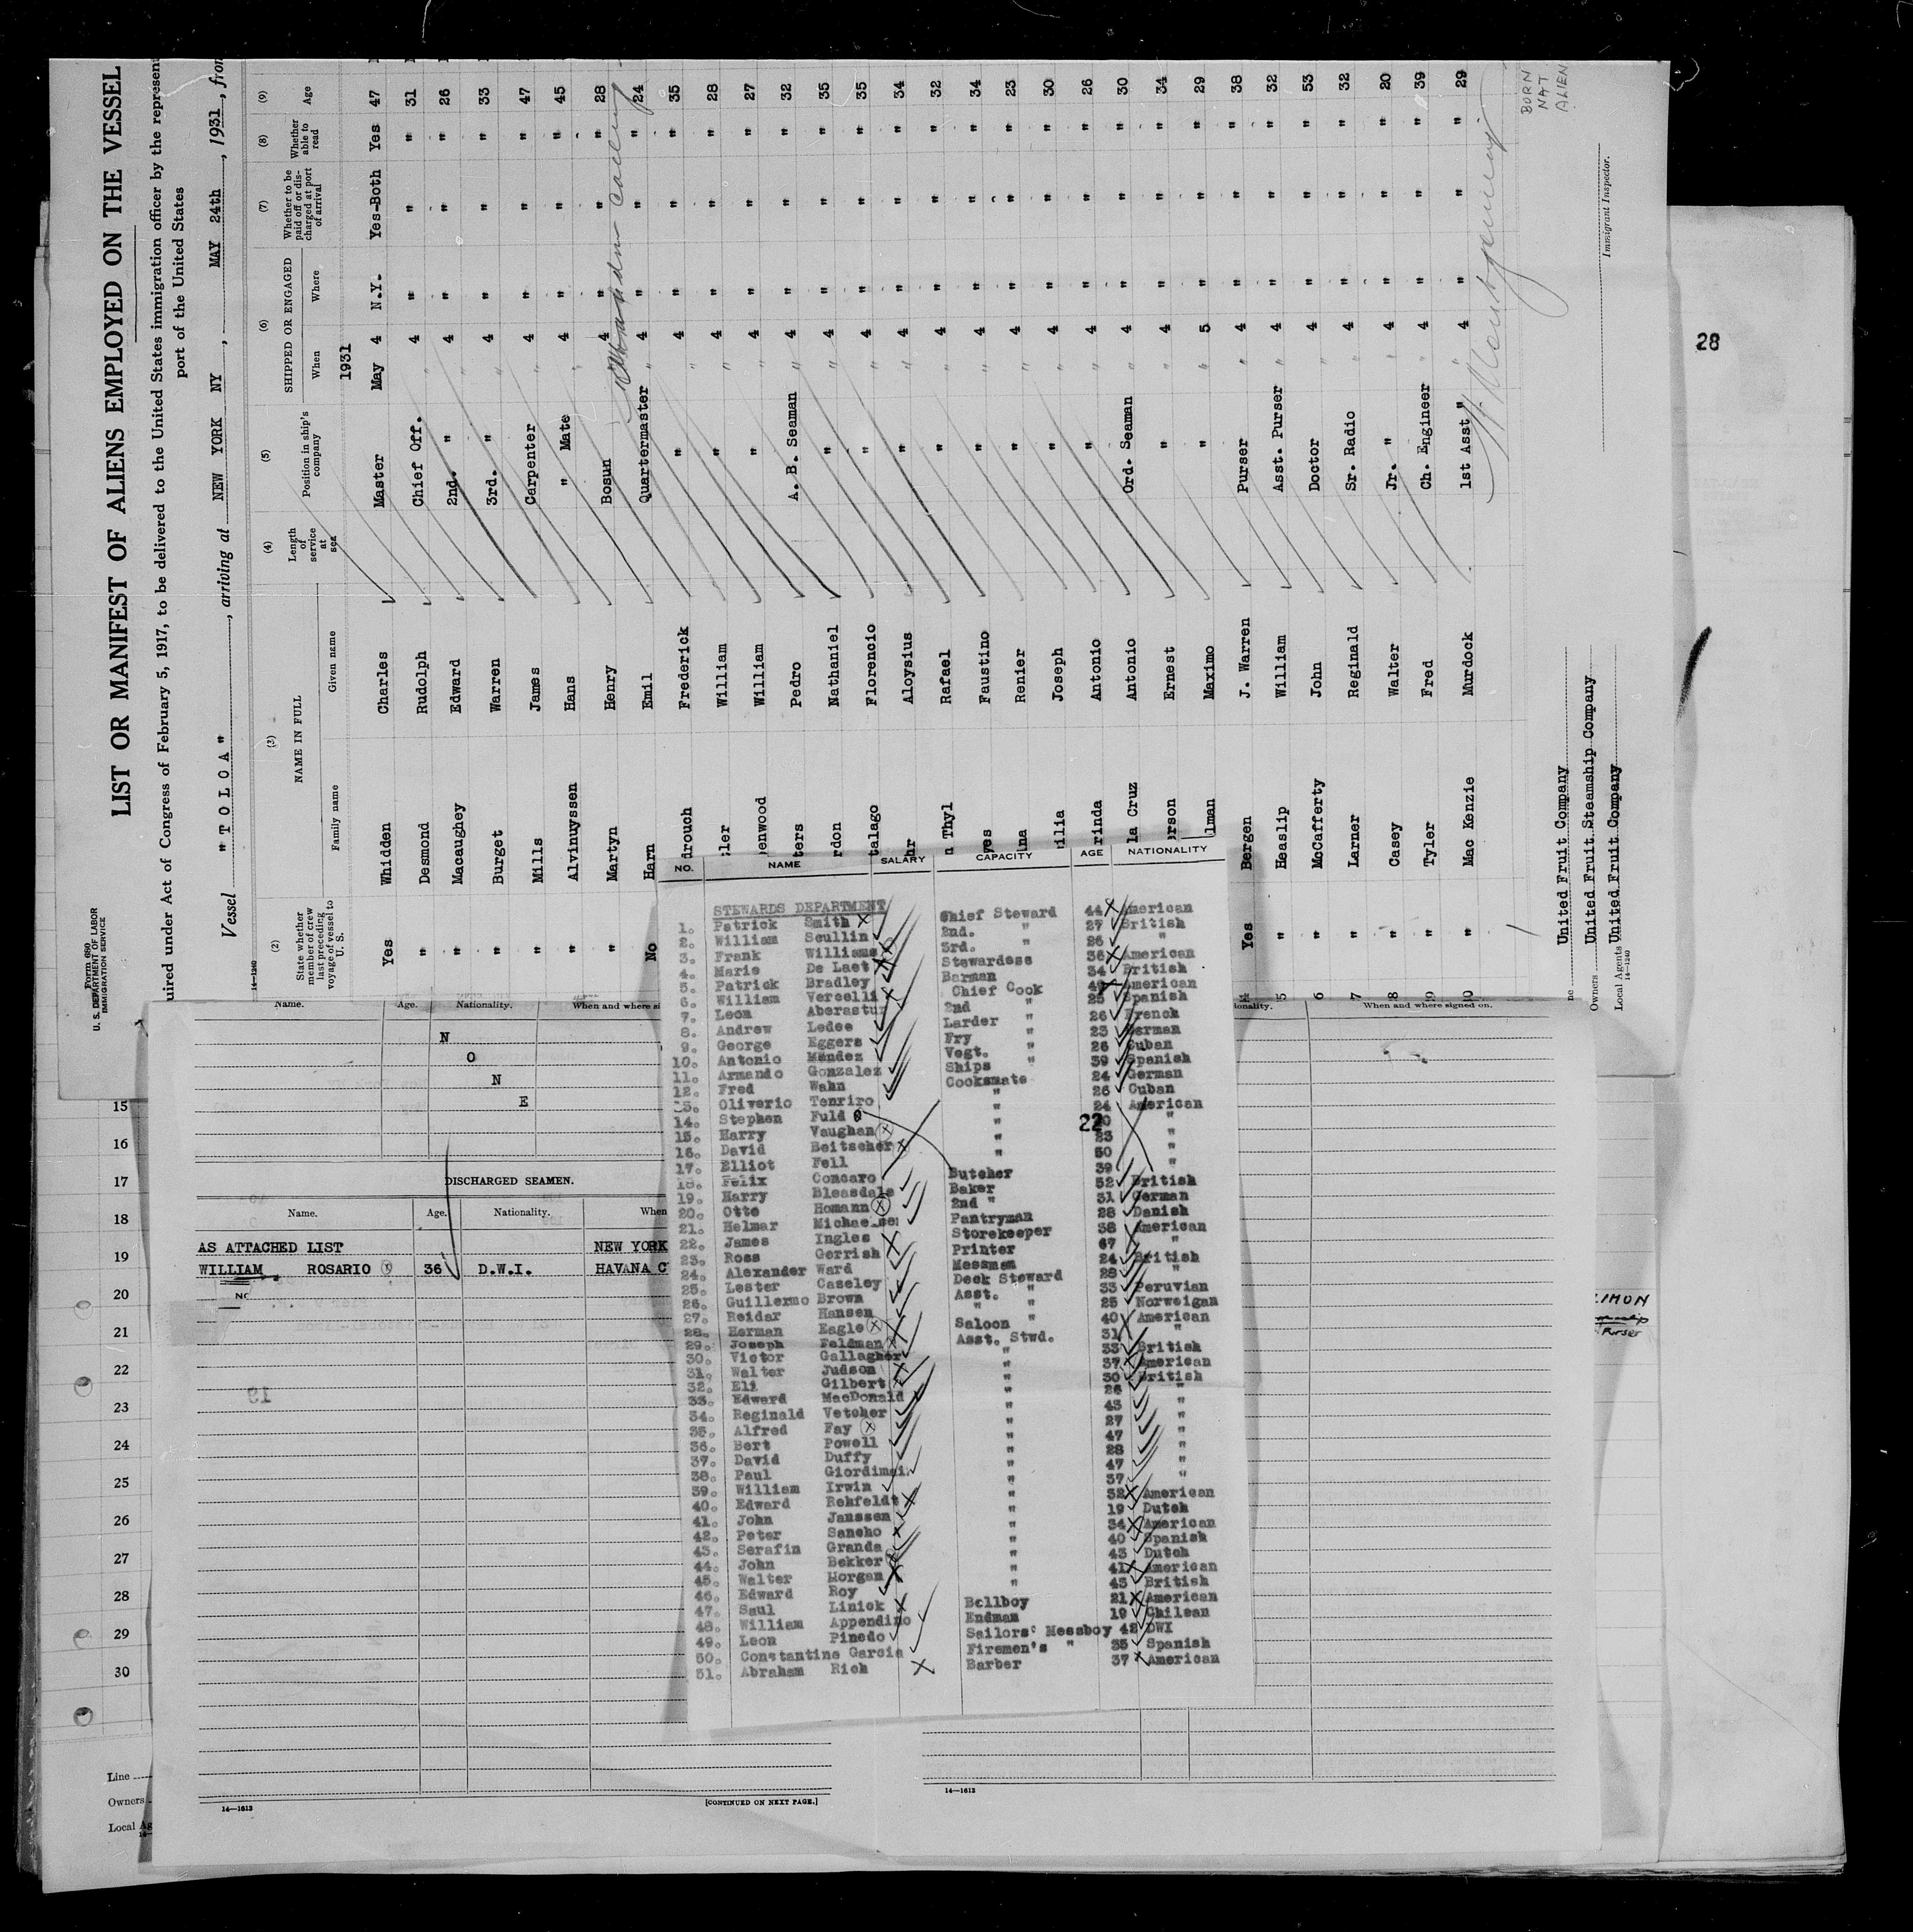 Form 680
U. S. DEPARTMENT OF LABOR
IMMIGRATION SERVICE
LIST OR MANIFEST OF ALIENS EMPLOYED ON THE VESSEL
uired under Act of Congress of February 5, 1917, to be delivered to the United States immigration officer by the represent
port of the United States
Vessel "TOLOA", arriving at NEW YORK NY, MAY 24th, 1931, from
14-1240
(2) (3) (4) (5) (6) (7) (8) (9)
State whether member of crew last preceding voyage of vessel to U. S.
NAME IN FULL
Family name Given name
Length of service at sea
Position in ship's company
SHIPPED OR ENGAGED
When Where
Whether to be paid off or discharged at port of arrival
Whether able to read
Age
1931
Yes Whidden Charles Master May 4 N.Y. Yes-Both Yes 47
" Desmond Rudolph Chief Off. " 4 " " " 31
" Macaughey Edward 2nd. " " 4 " " " 26
" Burget Warren 3rd. " " 4 " " " 33
" Mills James Carpenter " 4 " " " 47
" Alvinuyssen Hans " Mate " 4 " " " 45
" Martyn Henry Bosun 4 " " " 28
No Harn Emil Quartermaster " 4 " " " 24
drouch Frederick " " 4 " " " 35
ler William " " 4 " " " 28
enwood William " " 4 " " " 27
ters Pedro A. B. Seaman " 4 " " " 32
rdon Nathaniel " " 4 " " " 35
talago Florencio " " 4 " " " 35
hr Aloysius " " 4 " " " 34
n Thyl Rafael " " 4 " " " 32
yes Faustino " " 4 " " " 34
na Renier " " 4 " " " 23
ilia Joseph " " 4 " " " 30
rinda Antonio " " 4 " " " 26
la Cruz Antonio Ord. Seaman " 4 " " " 30
rson Ernest " " 4 " " " 34
lman Maximo " " 5 " " " 29
Yes Bergen J. Warren Purser " 4 " " " 38
" Heaslip William Asst. Purser " 4 " " " 32
" McCafferty John Doctor " 4 " " " 53
" Larner Reginald Sr. Radio " 4 " " " 32
" Casey Walter Jr. " " 4 " " " 20
" Tyler Fred Ch. Engineer " 4 " " " 39
" Mac Kenzie Murdock 1st Asst " " 4 " " " 29
BORN
NAT
ALIEN
United Fruit Company
Owners United Fruit Steamship Company
Local Agents United Fruit Company
14-1240
Immigrant Inspector.
28
NO. NAME SALARY CAPACITY AGE NATIONALITY
STEWARDS DEPARTMENT
1. Patrick Smith Chief Steward 44 American
2. William Scullin 2nd. " 27 British
3. Frank Williams 3rd. " 26 "
4. Marie De Laet Stewardess 36 American
5. Patrick Bradley Barman 34 British
6. William Vercelli Chief Cook American
7. Leon Aberastur 2nd 25 Spanish
8. Andrew Ledee Larder " 26 French
9. George Eggers Fry 23 German
10. Antonio Mendez Vegt. " 26 Cuban
11. Armando Gonzalez Ships " 39 Spanish
12. Fred Wahn Cooksmate 24 German
13. Oliverio Tenriro " 26 Cuban
14. Stephen Fuld " 24 American
15. Harry Vaughan " 22 "
16. David Beitscher " 23 "
17. Elliot Fell " 50 "
18. Felix Concaro Butcher 39 "
19. Harry Bleasdale Baker 52 British
20. Otto Homann 2nd " 31 German
21. Helmar Michaelsen Pantryman 28 Danish
22. James Ingles Storekeeper 38 American
23. Ross Gerrish Printer 67 "
24. Alexander Ward Messman 24 British
25. Lester Caseley Deck Steward 28 "
26. Guillermo Brown Asst. " 33 Peruvian
27. Reidar Hansen " " 25 Norweigan
28. Herman Eagle Saloon " 40 American
29. Joseph Feldman Asst. Stwd. 31 "
30. Victor Gallagher " 33 British
31. Walter Judson " 37 American
32. Eli Gilbert " 30 British
33. Edward MacDonald " 26 "
34. Reginald Vetcher " 43 "
35. Alfred Fay " 27 "
36. Bert Powell " 47 "
37. David Duffy " 28 "
38. Paul Giordimai " 47 "
39. William Irwin " 37 "
40. Edward Rehfeldt " 32 American
41. John Janssen " 19 Dutch
42. Peter Sancho " 34 American
43. Serafin Granda " 40 Spanish
44. John Bekker " 43 Dutch
45. Walter Morgan " 41 American
46. Edward Roy " 43 British
47. Saul Linick Bellboy 21 American
48. William Appendino Endman 19 Chilean
49. Leon Pinedo Sailors' Messboy 42 DWI
50. Constantine Garcia Firemen's " 35 Spanish
51. Abraham Rich Barber 37 American
Name. Age. Nationality. When and where si
onality. When and where signed on.
N
O
N
E
DISCHARGED SEAMEN.
Name. Age. Nationality. When
AS ATTACHED LIST NEW YORK
WILLIAM ROSARIO 36 D.W.I. HAVANA C
NO
14-1613
[CONTINUED ON NEXT PAGE.]
14-1613
15
16
17
18
19
20
21
22
23
24
25
26
27
28
29
30
Line
Owners
Local Ag
LIMON
Purser